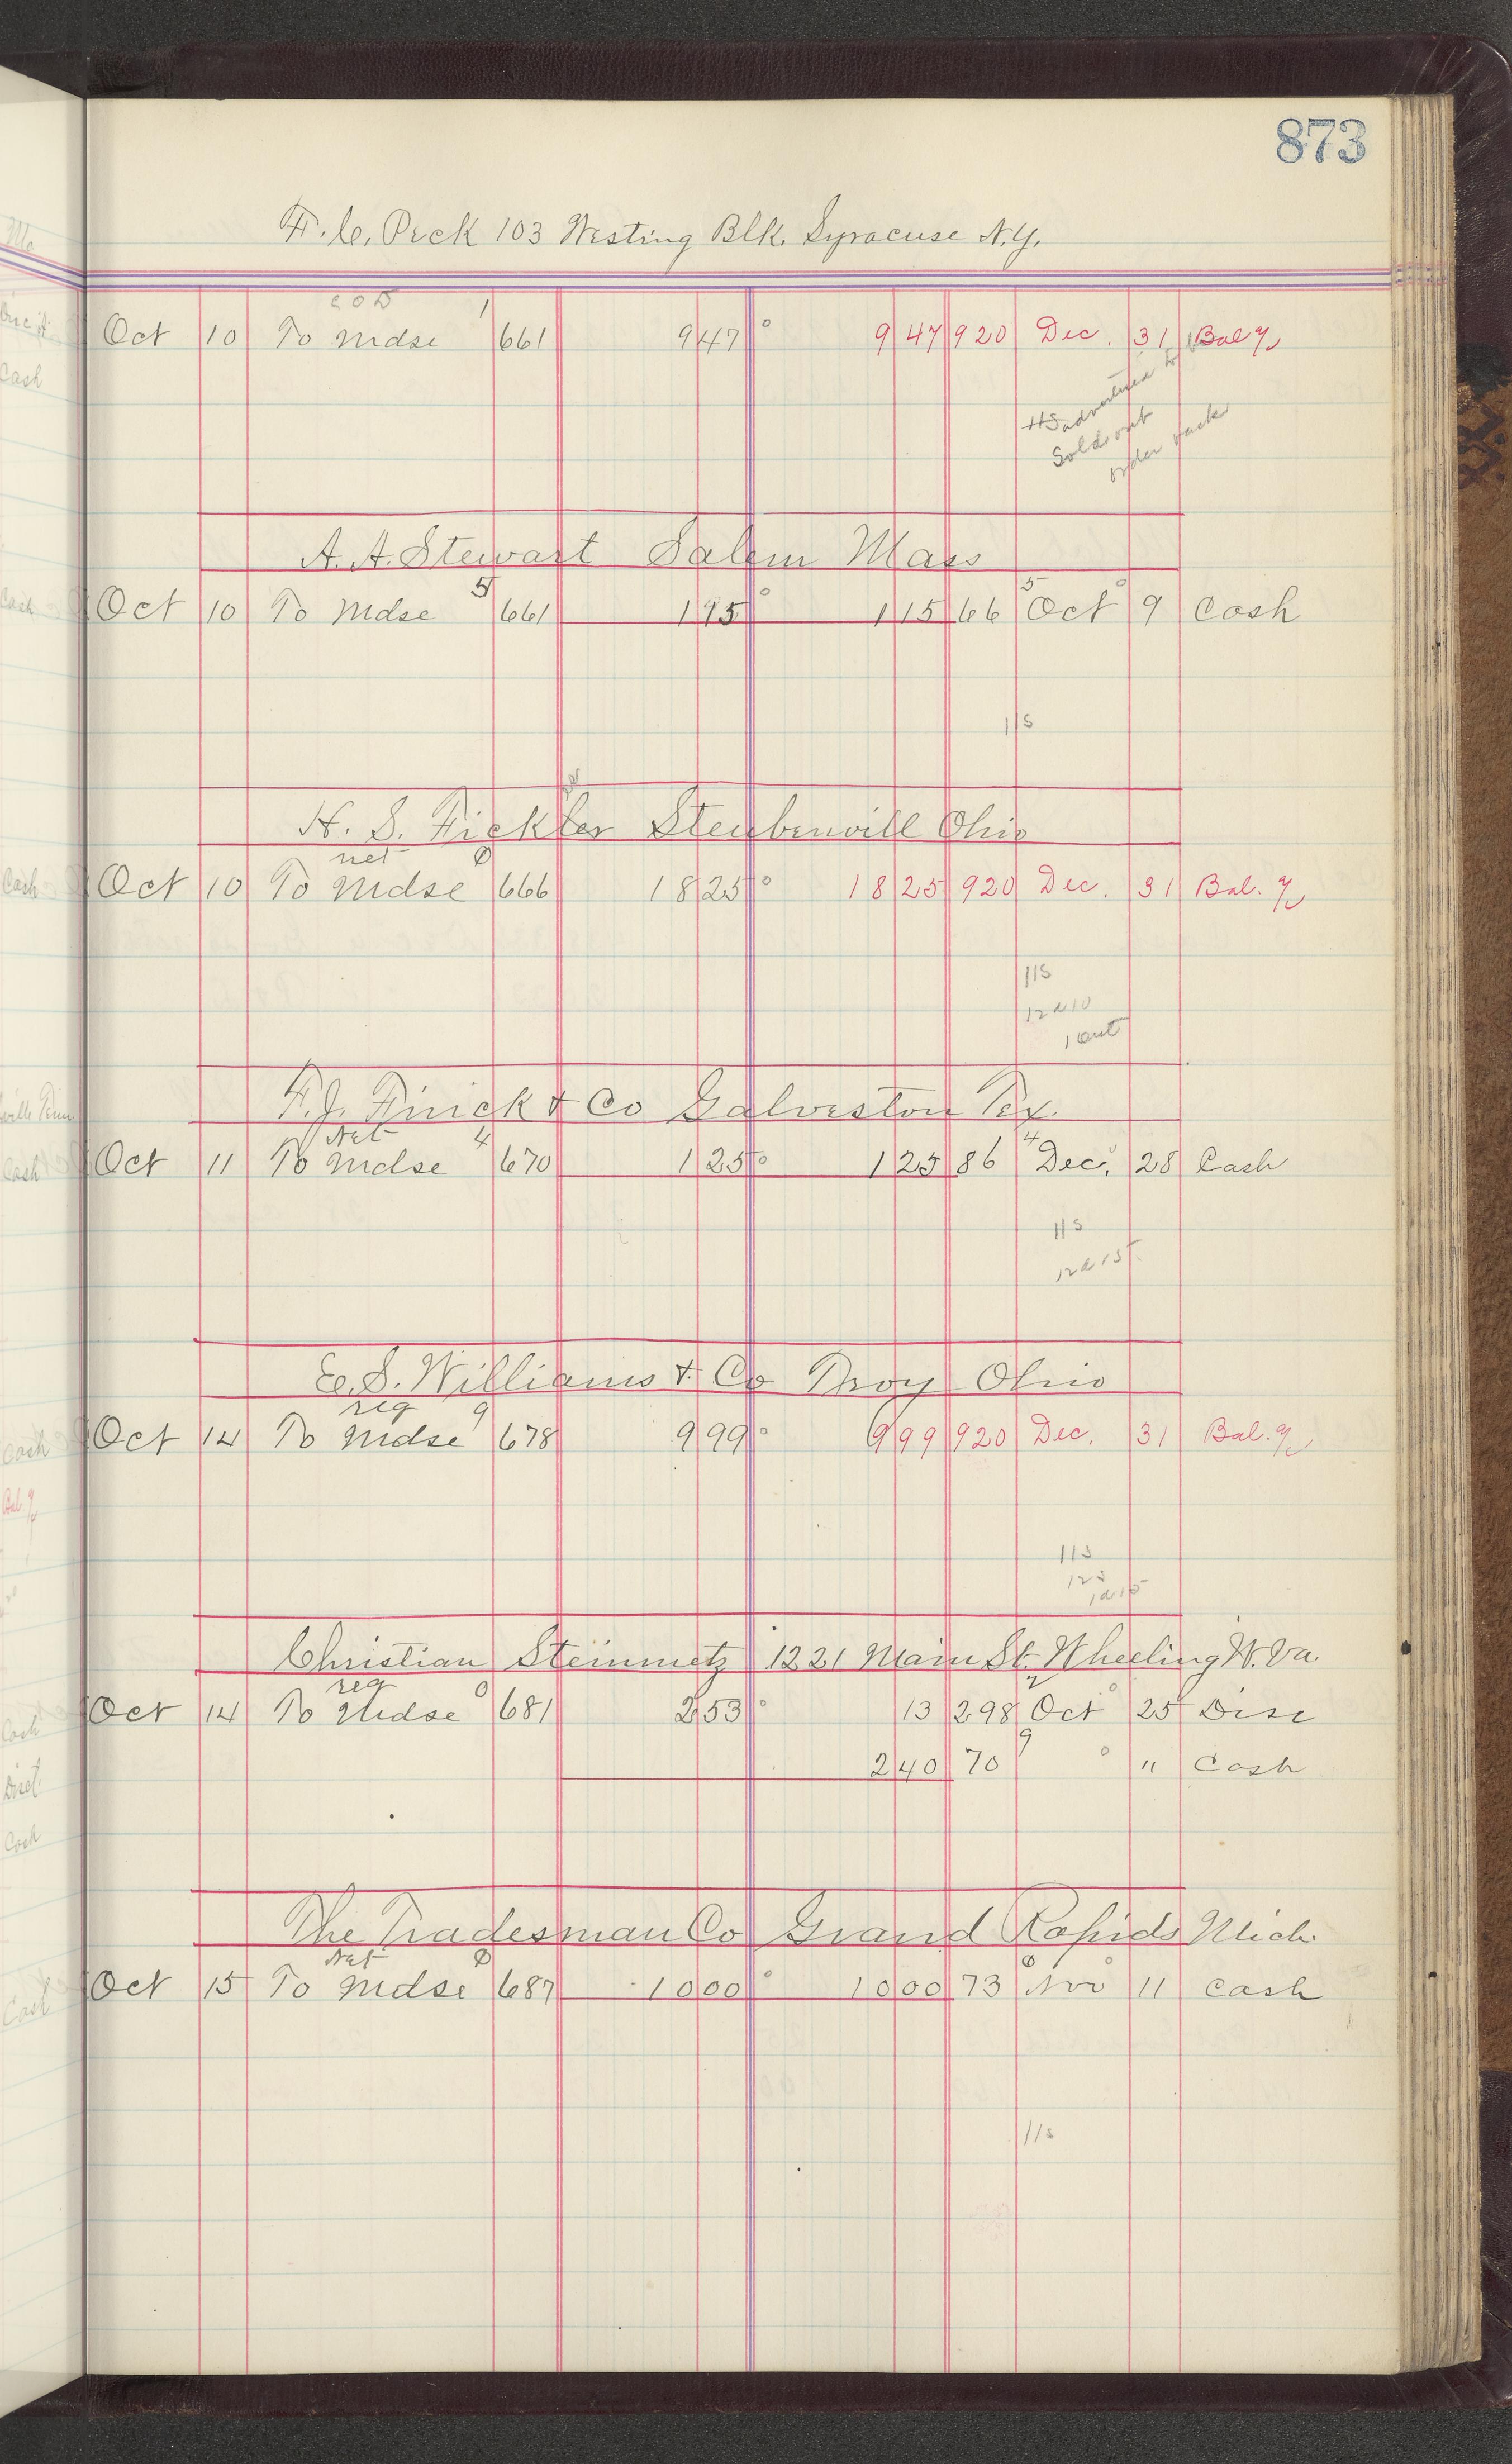 873
F. C. Peck 103 Westing Blk. Syracuse N.Y.
C O D 1
Oct 10 To Mdse 661 9 47 9 47 920 Dec. 31 Bal
advertised
Sold out
order back
A. A. Stewart Salem Mass
Oct 10 To Mdse 5 661 1 95 1 15 66 5 Oct 9 Cash
115
H. S. Fickler Steubenvill Ohio
net
Oct 10 To Mdse 666 18 25 18 25 920 Dec. 31 Bal.
115
12 d 10
1 out
F. J. Finick & Co Galveston Tex.
Net 4
Oct 11 To Mdse 670 1 25 1 25 86 4 Dec. 28 Cash
115
12 d 15
E. S. Williams & Co Troy Ohio
reg 9
Oct 14 To Mdse 678 9 99 9 99 920 Dec. 31 Bal.
115
Christian Steinmetz 1221 Main St. Wheeling W. Va.
reg 0
Oct 14 To Mdse 681 2 53 13 298 Oct 25 Disc
2 40 70 9 " Cash
The Tradesman Co Grand Rapids Mich.
Net
Oct 15 To Mdse 687 10 00 10 00 73 Nov 11 Cash
115